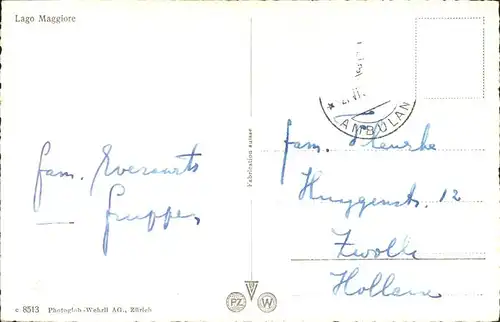 Lago Maggiore
AMBULAN
fam. Everaarts
Fabrication suisse
fam.
Huygenstr. 12
Zwolle
Holland
c 8513 Photoglob-Wehrli AG., Zürich
PZ W